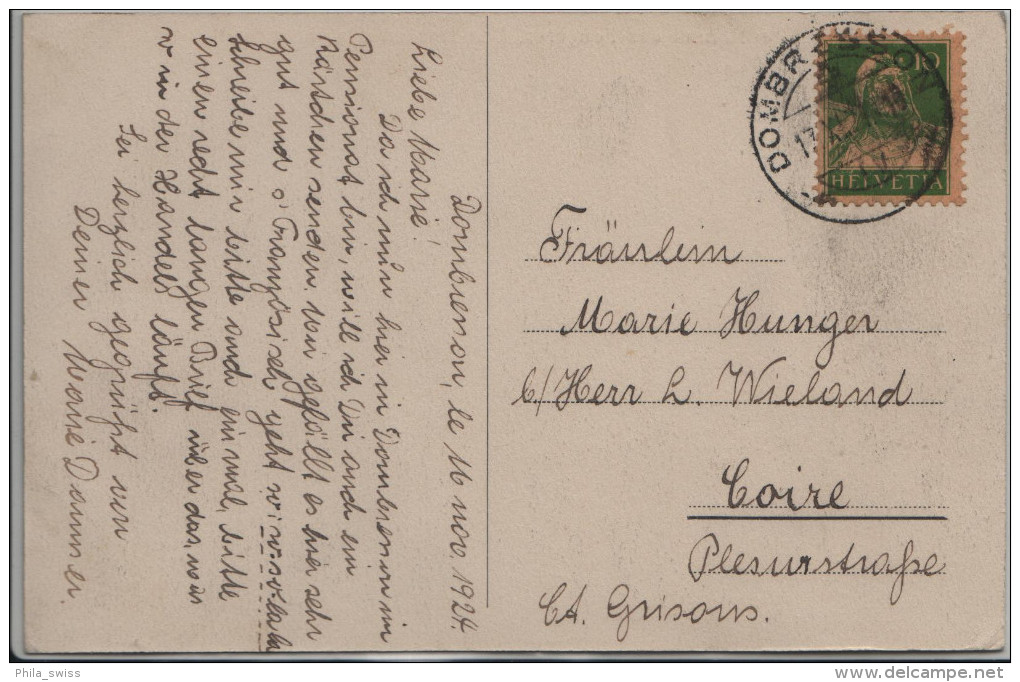 Dombresson, le 16 nov 1924.
Liebe Marie!
Da ich nun hier in Dombresson im
Pensionat bin, will ich Dir auch ein
Kärtchen senden. Mir gefällt es hier sehr
gut und s' Französisch geht
schreibe mir bitte auch einmal, bitte
einen recht langen Brief über das, was
v in der Handels läuft.
Sei herzlich gegrüsst von
Deiner Marie Danuser.
DOMBRESSON
10
HELVETIA
Fräulein
Marie Hunger
b/Herr L. Wieland
Coire
Plessurstraße
Ct. Grisons.
Phila_swiss
delcampe.net